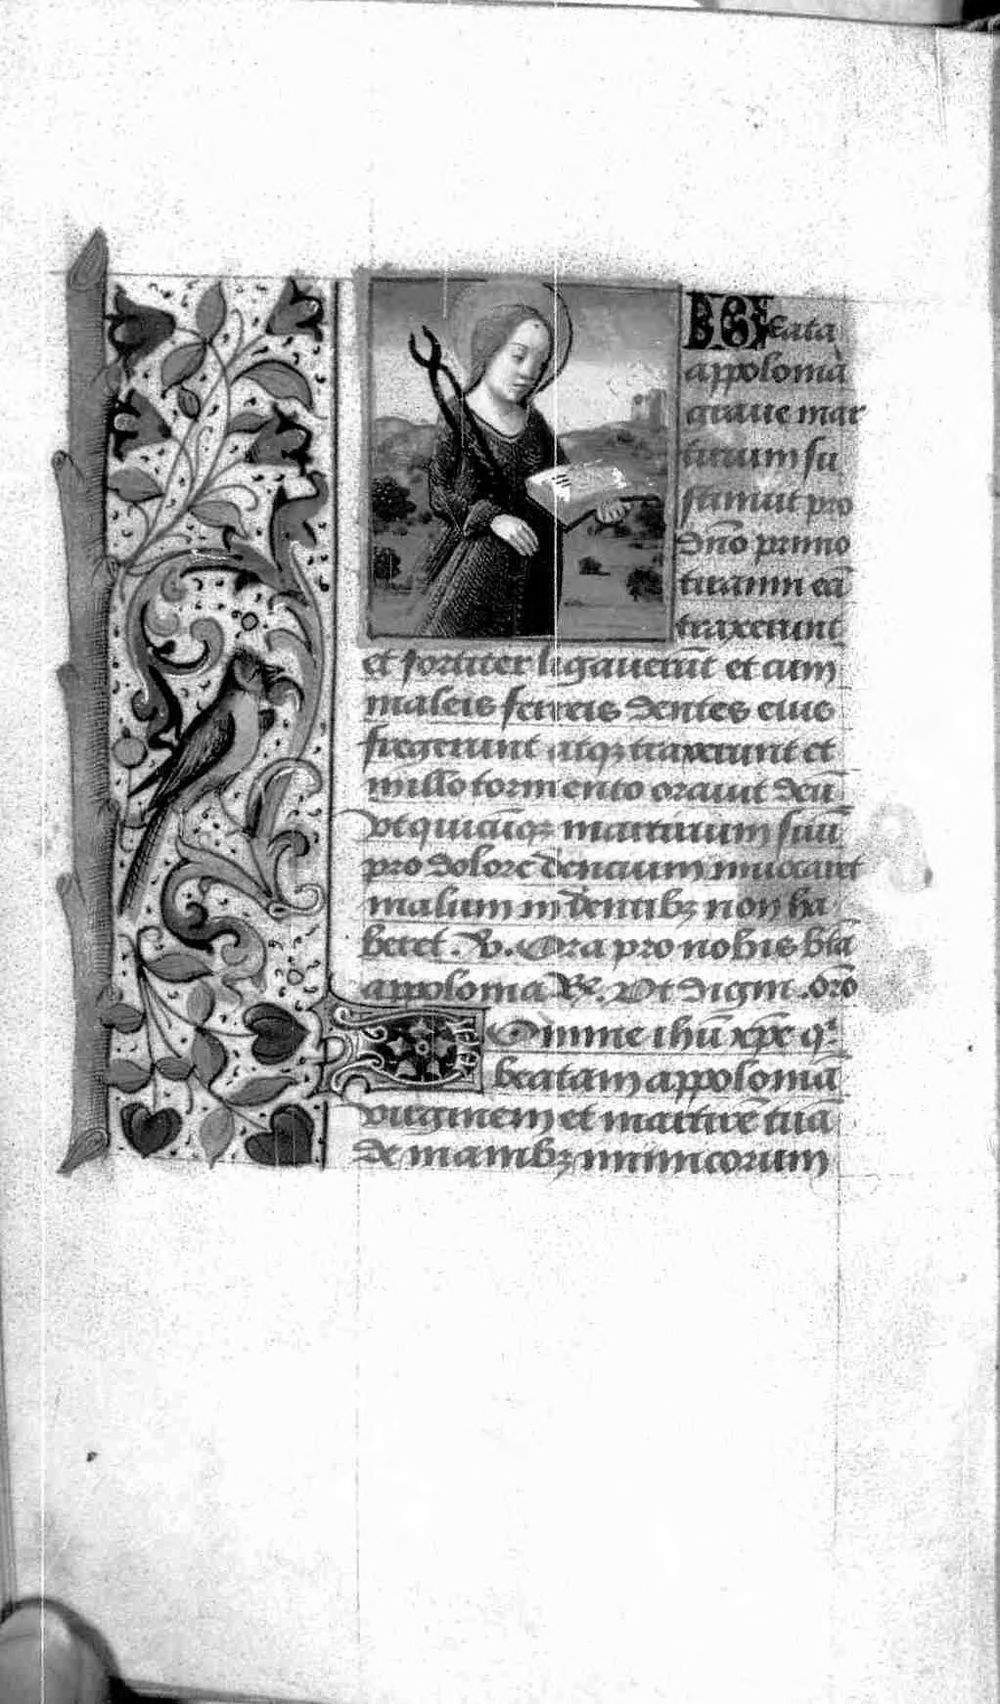 Beata
appolonia
graue mar
tirium su
stinuit pro
dño primo
tiranni eã
traxerunt
et fortiter ligauerũt et cum
maleis ferreis dentes eius
fregerunt atqꝫ traxerunt et
in illo tormento orauit deũ
vt quicũqꝫ martirium suũ
pro dolore dencium inuocaret
malum in dentibꝫ non ha
beret. V. Ora pro nobis btã
appolonia R. Vt digni. orõ
Omine ihũ xpẽ q
beatam appoloniã
virginem et martirẽ tuã
de manibꝫ inimicorum